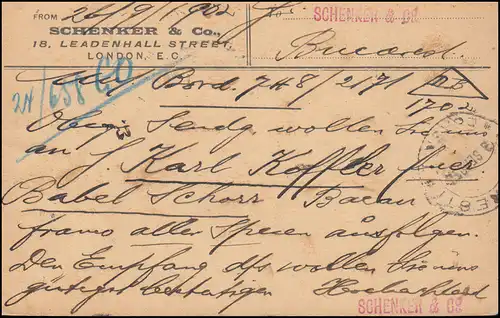 FROM 26/9/1902
SCHENKER & Co.,
18, LEADENHALL STREET,
LONDON, E.C.
SCHENKER & Co
Bucarest.
24/658
Bord. 748/2171
1702
Obige Sendg. wollen Sie uns
an Karl Koffler fuer
Babel Schorr Bacau
franco aller Spesen ausfolgen.
Den Empfang dfs wollen Sie uns
gütigst bestätigen Hochachtend
SCHENKER & Co